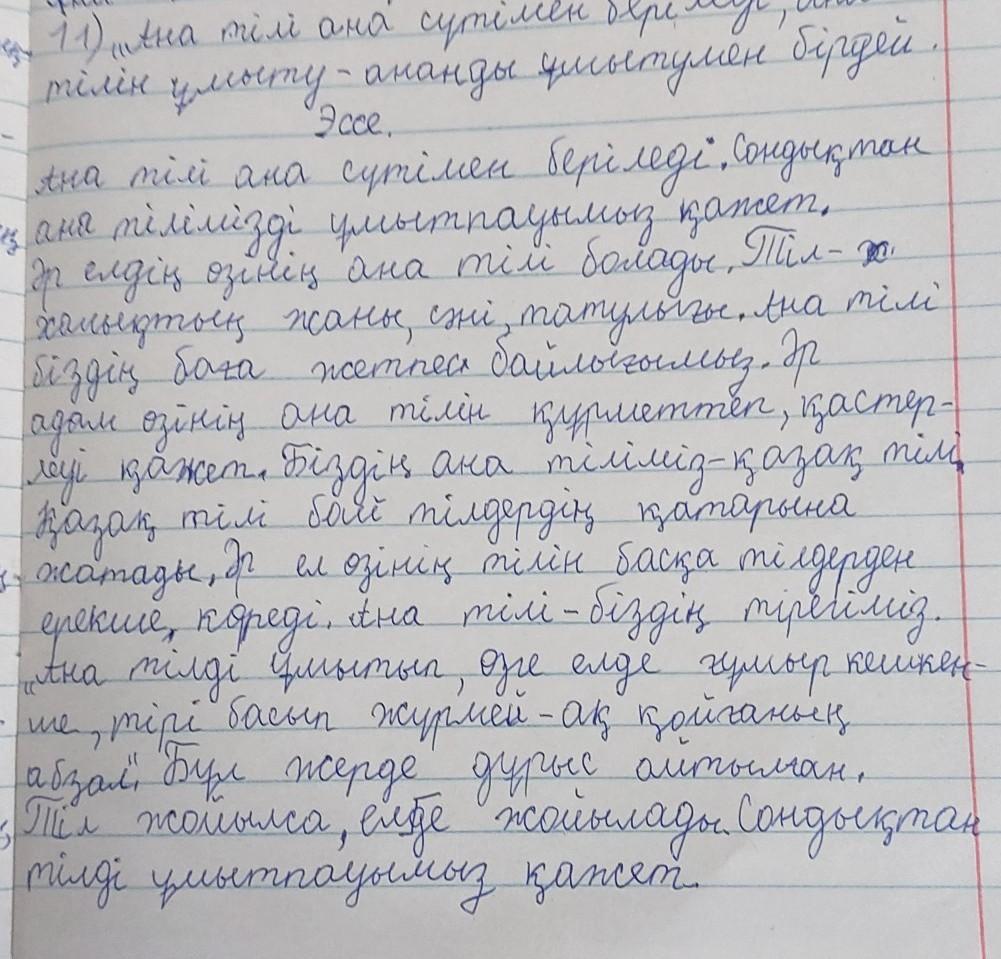 11) „Ана тілі ана сүтімен беріледі,
тілін ұмыту - ананды ұмытумен бірдей.
Эссе.
Ана тілі ана сүтімен беріледі. Сондықтан
ана тілімізді ұмытпауымыз қажет.
Әр елдің өзінің ана тілі болады. Тіл -
халықтың жаны, сәні, татулығы. Ана тілі
біздің баға жетпес байлығымыз. Әр
адам өзінің ана тілін құрметтеп, қастер-
леуі қажет. Біздің ана тіліміз - қазақ тілі.
Қазақ тілі бай тілдердің қатарына
жатады. Әр ел өзінің тілін басқа тілдерден
ерекше, көреді. Ана тілі - біздің тірегіміз.
„Ана тілді ұмытып, өзге елде ғұмыр кешкен-
ше, тірі басып жүрмей-ақ қойғаның
абзал". Бұл жерде дұрыс айтылған.
Тіл жойылса, елде жойылады. Сондықтан
тілді ұмытпауымыз қажет.